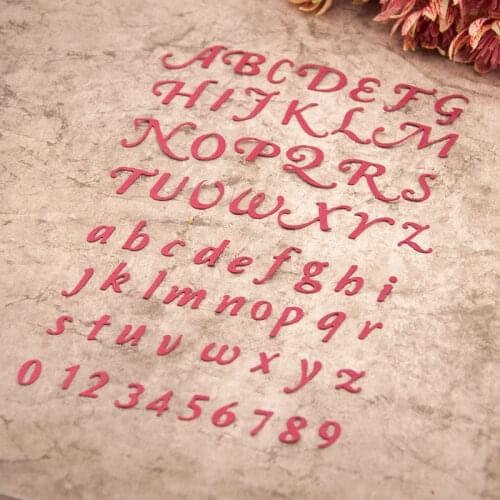 ABCDEFG
HIJKLM
NOPQRS
TUVWXYZ
abcdefghi
jklmnopqr
stuvwxyz
0123456789